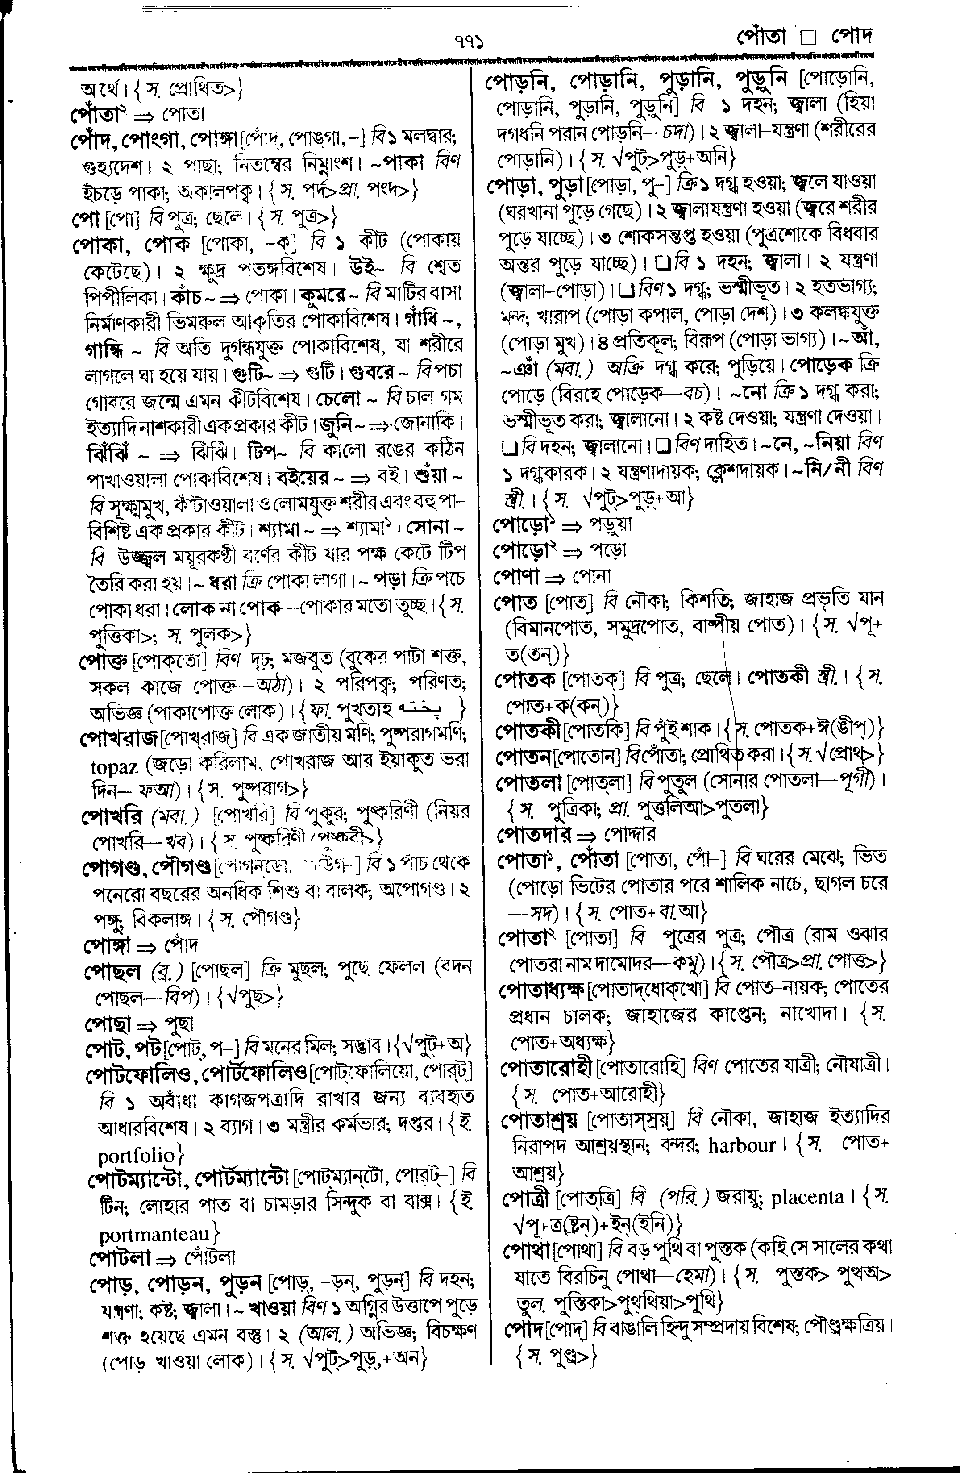 ৭৭১
পোঁতা □ পোদ
অর্থে। {স. প্রোথিত>}
পোঁতা২ ⇒ পোতা
পোঁদ, পোংগা, পোঙ্গা [পোঁদ, পোঙ্গা, -] বি ১ মলদ্বার;
গুহ্যদেশ। ২ পাছা; নিতম্বের নিম্নাংশ। ~পাকা বিণ
ইঁচড়ে পাকা; অকালপক্ব। {স. পর্দ>প্রা. পংদ>}
পো [পো] বি পুত্র; ছেলে। {স. পুত্র>}
পোকা, পোক [পোকা, -ক] বি ১ কীট (পোকায়
কেটেছে)। ২ ক্ষুদ্র পতঙ্গবিশেষ। উই~ বি শ্বেত
পিপীলিকা। কাঁচ ~ ⇒ পোকা। কুমরে ~ বি মাটির বাসা
নির্মাণকারী ভিমরুল আকৃতির পোকাবিশেষ। গাঁধি ~,
গান্ধি ~ বি অতি দুর্গন্ধযুক্ত পোকাবিশেষ, যা শরীরে
লাগলে ঘা হয়ে যায়। গুটি~ ⇒ গুটি। গুবরে ~ বি পচা
গোবরে জন্মে এমন কীটবিশেষ। চেলো ~ বি চাল গম
ইত্যাদি নাশকারী এক প্রকার কীট। জুনি ~ ⇒ জোনাকি।
ঝিঁঝিঁ ~ ⇒ ঝিঁঝিঁ। টিপ~ বি কালো রঙের কঠিন
পাখাওয়ালা পোকাবিশেষ। বইয়ের ~ ⇒ বই। শুঁয়া ~
বি সূক্ষ্মমুখ, কাঁটাওয়ালা ও লোমযুক্ত শরীর এবং বহু পা-
বিশিষ্ট এক প্রকার কীট। শ্যামা ~ ⇒ শ্যামা১। সোনা ~
বি উজ্জ্বল ময়ূরকণ্ঠী বর্ণের কীট যার পক্ষ কেটে টিপ
তৈরি করা হয়। ~ ধরা ক্রি পোকা লাগা। ~ পড়া ক্রি পচে
পোকা ধরা। লোক না পোক—পোকার মতো তুচ্ছ। {স.
পুত্তিকা>; স. পুলক>}
পোক্ত [পোকতো] বিণ দৃঢ়; মজবুত (বুকের পাটা শক্ত,
সকল কাজে পোক্ত—অঠা)। ২ পরিপক্ব; পরিণত;
অভিজ্ঞ (পাকাপোক্ত লোক)। {ফা. পুখতাহ پخته}
পোখরাজ [পোখ্‌রাজ] বি এক জাতীয় মণি; পুষ্পরাগমণি;
topaz (জড়ো করিলাম, পোখরাজ আর ইয়াকুত ভরা
দিন— ফআ)। {স. পুষ্পরাগ>}
পোখরি (মবা.) [পোখরি] বি পুকুর; পুষ্করিণী (নিয়র
পোখরি—খব)। {স. পুষ্করিণী
পোগণ্ড, পৌগণ্ড বি ১ পাঁচ থেকে
পনেরো বছরের অনধিক শিশু বা বালক; অপোগণ্ড। ২
পঙ্গু, বিকলাঙ্গ। {স. পৌগণ্ড}
পোঙ্গা ⇒ পোঁদ
পোছল (ব্র.) [পোছল] ক্রি মুছল; পুছে ফেলল (বদন
পোছল—বিপ)। {√পুছ>}
পোছা ⇒ পুছা
পোট, পট [পোট, প-] বি মনের মিল; সদ্ভাব। {√পুট্+অ}
পোটফোলিও, পোর্টফোলিও [পোট্‌ফোলিয়ো, পোর্‌ট্]
বি ১ অবাঁধা কাগজপত্রাদি রাখার জন্য ব্যবহৃত
আধারবিশেষ। ২ ব্যাগ। ৩ মন্ত্রীর কর্মভার; দপ্তর। {ই.
portfolio}
পোটম্যান্টো, পোর্টম্যান্টো [পোট্‌ম্যান্‌টো, পোর্‌ট্-] বি
টিন, লোহার পাত বা চামড়ার সিন্দুক বা বাক্স। {ই.
portmanteau}
পোটলা ⇒ পোঁটলা
পোড়, পোড়ন, পুড়ন [পোড়্, -ড়ন্, পুড়ন্] বি দহন;
যন্ত্রণা; কষ্ট; জ্বালা। ~ খাওয়া বিণ ১ অগ্নির উত্তাপে পুড়ে
শক্ত হয়েছে এমন বস্তু। ২ (আল.) অভিজ্ঞ; বিচক্ষণ
(পোড় খাওয়া লোক)। {স. √পুট্>পুড়্+অন}
পোড়নি, পোড়ানি, পুড়ানি, পুড়ুনি [পোড়োনি,
পোড়ানি, পুড়ানি, পুড়ুনি] বি ১ দহন; জ্বালা (হিয়া
দগধনি পরান পোড়নি—চদা)। ২ জ্বালা-যন্ত্রণা (শরীরের
পোড়ানি)। {স. √পুট্>পুড়্+অনি}
পোড়া, পুড়া [পোড়া, পু-] ক্রি ১ দগ্ধ হওয়া; জ্বলে যাওয়া
(ঘরখানা পুড়ে গেছে)। ২ জ্বালাযন্ত্রণা হওয়া (জ্বরে শরীর
পুড়ে যাচ্ছে)। ৩ শোকসন্তপ্ত হওয়া (পুত্রশোকে বিধবার
অন্তর পুড়ে যাচ্ছে)। □ বি ১ দহন; জ্বালা। ২ যন্ত্রণা
(জ্বালা-পোড়া)। □ বিণ ১ দগ্ধ; ভস্মীভূত। ২ হতভাগ্য;
মন্দ; খারাপ (পোড়া কপাল, পোড়া দেশ)। ৩ কলঙ্কযুক্ত
(পোড়া মুখ)। ৪ প্রতিকূল; বিরূপ (পোড়া ভাগ্য)। ~আঁ,
~এাঁ (মবা.) অক্রি দগ্ধ করে; পুড়িয়ে। পোড়েক ক্রি
পোড়ে (বিরহে পোড়েক—বচ)। ~নো ক্রি ১ দগ্ধ করা;
ভস্মীভূত করা; জ্বালানো। ২ কষ্ট দেওয়া; যন্ত্রণা দেওয়া।
□ বি দহন; জ্বালানো। □ বিণ দাহিত। ~নে, ~নিয়া বিণ
১ দগ্ধকারক। ২ যন্ত্রণাদায়ক; ক্লেশদায়ক। ~নি/নী বিণ
স্ত্রী.। {স. √পুট্>পুড়্+আ}
পোড়ো১ ⇒ পড়ুয়া
পোড়ো২ ⇒ পড়ো
পোণা ⇒ পোনা
পোত [পোত] বি নৌকা; কিশতি; জাহাজ প্রভৃতি যান
(বিমানপোত, সমুদ্রপোত, বাষ্পীয় পোত)। {স. √পূ+
ত(তন্)}
পোতক [পোতক্] বি পুত্র; ছেলে। পোতকী স্ত্রী.। {স.
পোত+ক(কন্)}
পোতকী [পোতকি] বি পুঁই শাক। {স. পোতক+ঈ(ঙীপ্)}
পোতন [পোতোন] বি পোঁতা; প্রোথিত করা। {স. √প্রোথ্>}
পোতলা [পোত্‌লা] বি পুতুল (সোনার পোতলা—পূগী)।
{স. পুত্রিকা; প্রা. পুত্তলিআ>পুতলা}
পোতদার ⇒ পোদ্দার
পোতা১, পোঁতা [পোতা, পোঁ-] বি ঘরের মেঝে; ভিত
(পোড়ো ভিটের পোতার পরে শালিক নাচে, ছাগল চরে
—সদ)। {স. পোত+বা.আ}
পোতা২ [পোতা] বি পুত্রের পুত্র; পৌত্র (রাম ওঝার
পোতরা নাম দামোদর—কমু)। {স. পৌত্র>প্রা. পোত্ত>}
পোতাধ্যক্ষ [পোতাদ্‌ধোক্‌খো] বি পোত-নায়ক; পোতের
প্রধান চালক; জাহাজের কাপ্তেন; নাখোদা। {স.
পোত+অধ্যক্ষ}
পোতারোহী [পোতারোহি] বিণ পোতের যাত্রী; নৌযাত্রী।
{স. পোত+আরোহী}
পোতাশ্রয় [পোতাস্‌স্রয়্] বি নৌকা, জাহাজ ইত্যাদির
নিরাপদ আশ্রয়স্থান; বন্দর; harbour। {স. পোত+
আশ্রয়}
পোত্রী [পোত্‌ত্রি] বি (পরি.) জরায়ু; placenta। {স.
√পূ+ত্র(ষ্ট্রন্)+ইন্(ইনি)}
পোথা [পোথা] বি বড় পুথি বা পুস্তক (কহি সে সালের কথা
যাতে বিরচিনু পোথা—হেমা)। {স. পুস্তক> পুত্থঅ>
তুল. পুস্তিকা>পুথথিয়া>পুথি}
পোদ [পোদ] বি বাঙালি হিন্দু সম্প্রদায় বিশেষ; পৌণ্ড্রক্ষত্রিয়।
{স. পুণ্ড্র>}